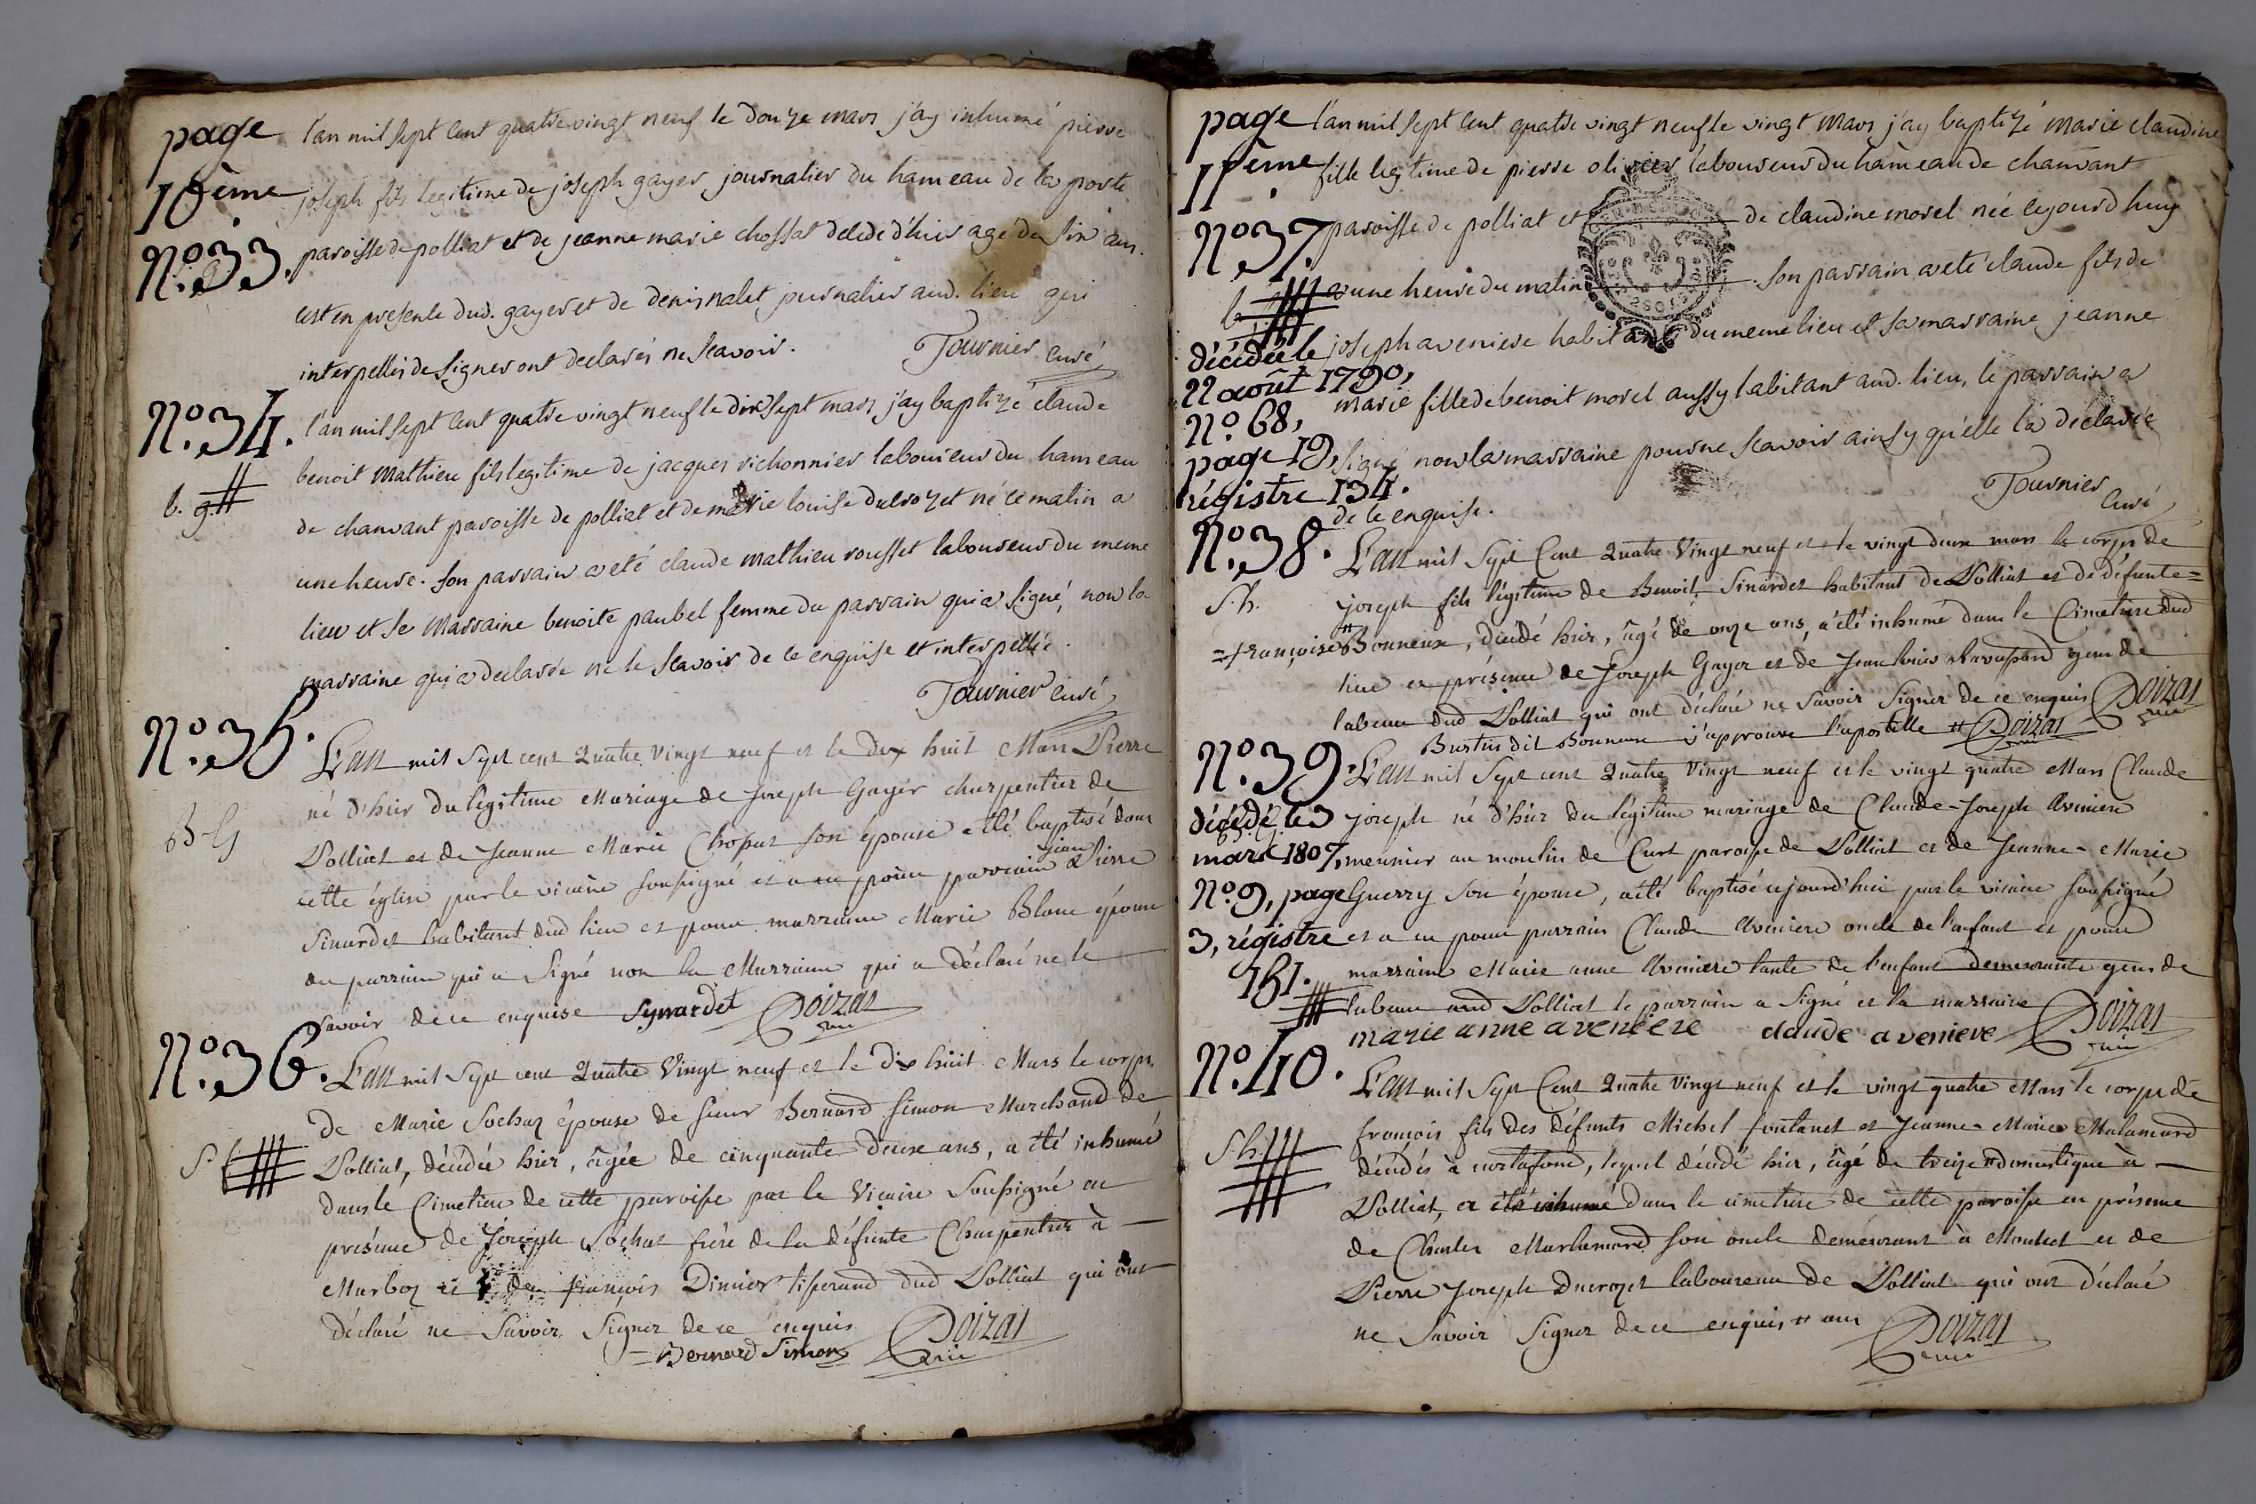 page
10ème
N.º 33.
l'an mil sept cent quatre vingt neuf le douze mars j'ay inhumé pierre
joseph fils legitime de joseph gayer journalier du hameau de la poste
paroisse de polliat et de jeanne marie chossat decedé d'hier agé de six ans.
est en presence dud. gayer et de denis nalet journalier aud. lieu qui
interpellés de signer ont declarés ne scavoir.
Tournier curé
N.º 34.
b. g.
l'an mil sept cent quatre vingt neuf le dix sept mars j'ay baptizé claude
benoit mathieu fils legitime de jacques richonnier laboureur du hameau
de chanvant paroisse de polliat et de marie louise ducrozet né ce matin a
une heure. son parrain a eté claude mathieu rousset laboureur du meme
lieu et se marraine benoite paubel femme du parrain qui a signé, non la
marraine qui a declarée ne le scavoir de ce enquise et interpellée.
Tournier curé
N.º 35.
B-G
L'an mil sept cent Quatre Vingt neuf et le dix huit Mars Pierre
né d'hier du légitime Mariage de Joseph Gayer charpentier de
Polliat et de Jeanne Marie Chossat son épouse a été baptisé dans
cette église par le vicaire soussigné et a eu pour parrain Pierre
Sinardet habitant dud lieu et pour marraine Marie Blanc épouse
du parrain qui a Signé non la Marraine qui a déclaré ne le
savoir de ce enquise Synardet Poizat
vic
N.º 36.
S.
L'an mil sept cent Quatre Vingt neuf et le dix huit Mars le corps
de Marie Sochaz épouse de sieur Bernard Simon Marchand de
Polliat, décédée hier, âgée de cinquante deux ans, a été inhumé
dans le Cimetiere de cette paroisse par le Vicaire Soussigné en
présence de Joseph Sochaz frère de la défunte Charpentier à
Marboz et de françois Dinnier tisserand dud Polliat qui ont
déclaré ne Savoir Signer de ce enquis
Bernard Simon Poizat
vic
page
11ème
N.º 37.
b
l'an mil sept cent quatre vingt neuf le vingt mars j'ay baptizé marie claudine
fille legitime de pierre olivier laboureur du hameau de chanvant
paroisse de polliat et de claudine morel née cejourd huy
a une heure du matin son parrain a eté claude fils de
joseph aveniere habitant du meme lieu et sa marraine jeanne
marie fille de benoit morel aussy habitant aud. lieu, le parrain a
signé non la marraine pour ne scavoir ainsy qu'elle l'a declarée
de ce enquise.
Tournier curé
décédée le
22 août 1790,
N.º 68,
page 19,
régistre 134.
N.º 38.
S.h.
L'an mil Sept Cent Quatre Vingt neuf et le vingt deux mars le corps de
joseph fils légitime de Benoit Sinardet habitant de Polliat et de défunte =
= françoise Bonneux, décédé hier, âgé de onze ans, a été inhumé dans le Cimetiere dud
lieu en présence de Joseph Gayer et de Jean louis Ravassard gens de
labeur dud Polliat qui ont déclaré ne Savoir Signer de ce enquis Poizat
vic
Burtin dit Bonneux j'approuve l'apostille Poizat
N.º 39.
L'an mil Sept cent Quatre Vingt neuf et le vingt quatre Mars Claude
joseph né d'hier du légitime mariage de Claude-Joseph Aveniere
meunier au moulin de Curt paroisse de Polliat et de Jeanne-Marie
Guerry son épouse, a été baptisé cejourd'hui par le vicaire soussigné
et a eu pour parrain Claude Aveniere oncle de l'enfant et pour
marraine Marie anne Aveniere tante de l'enfant demeurante gens de
labeur aud Polliat le parrain a Signé et la marraine
marie anne aveniere claude aveniere Poizat
vic
décédé le 3
mars 1807,
N.º 9, page
3, régistre
151.
N.º 40.
S.h.
L'an mil Sept Cent Quatre Vingt neuf et le vingt quatre Mars le corps de
françois fils des défunts Michel fontanet et Jeanne-Marie Malamard
décédés à cortafond, lequel décédé hier, âgé de treize domestique à
Polliat, a été inhumé dans le cimetiere de cette paroisse en présence
de Charles Marlamard son oncle demeurant à Montcet et de
Pierre Joseph Ducrozet laboureur de Polliat qui ont déclaré
ne Savoir Signer de ce enquis # ans Poizat
vic